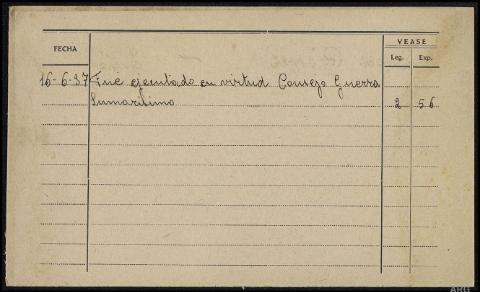 FECHA
VEASE
Leg. Exp.
16-6-37 Fué ejecutado en virtud Consejo Guerra
Sumarísimo 2 56
ARG